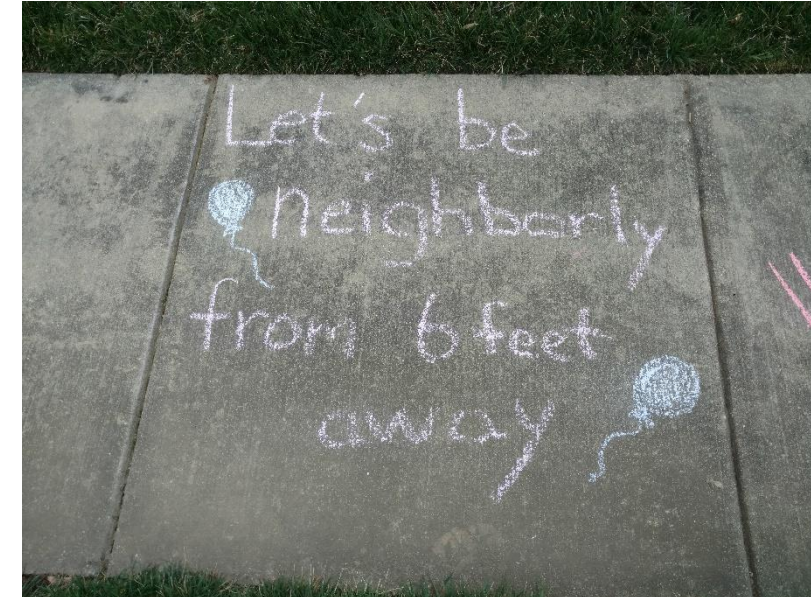 Let's be
neighborly
from 6 feet
away